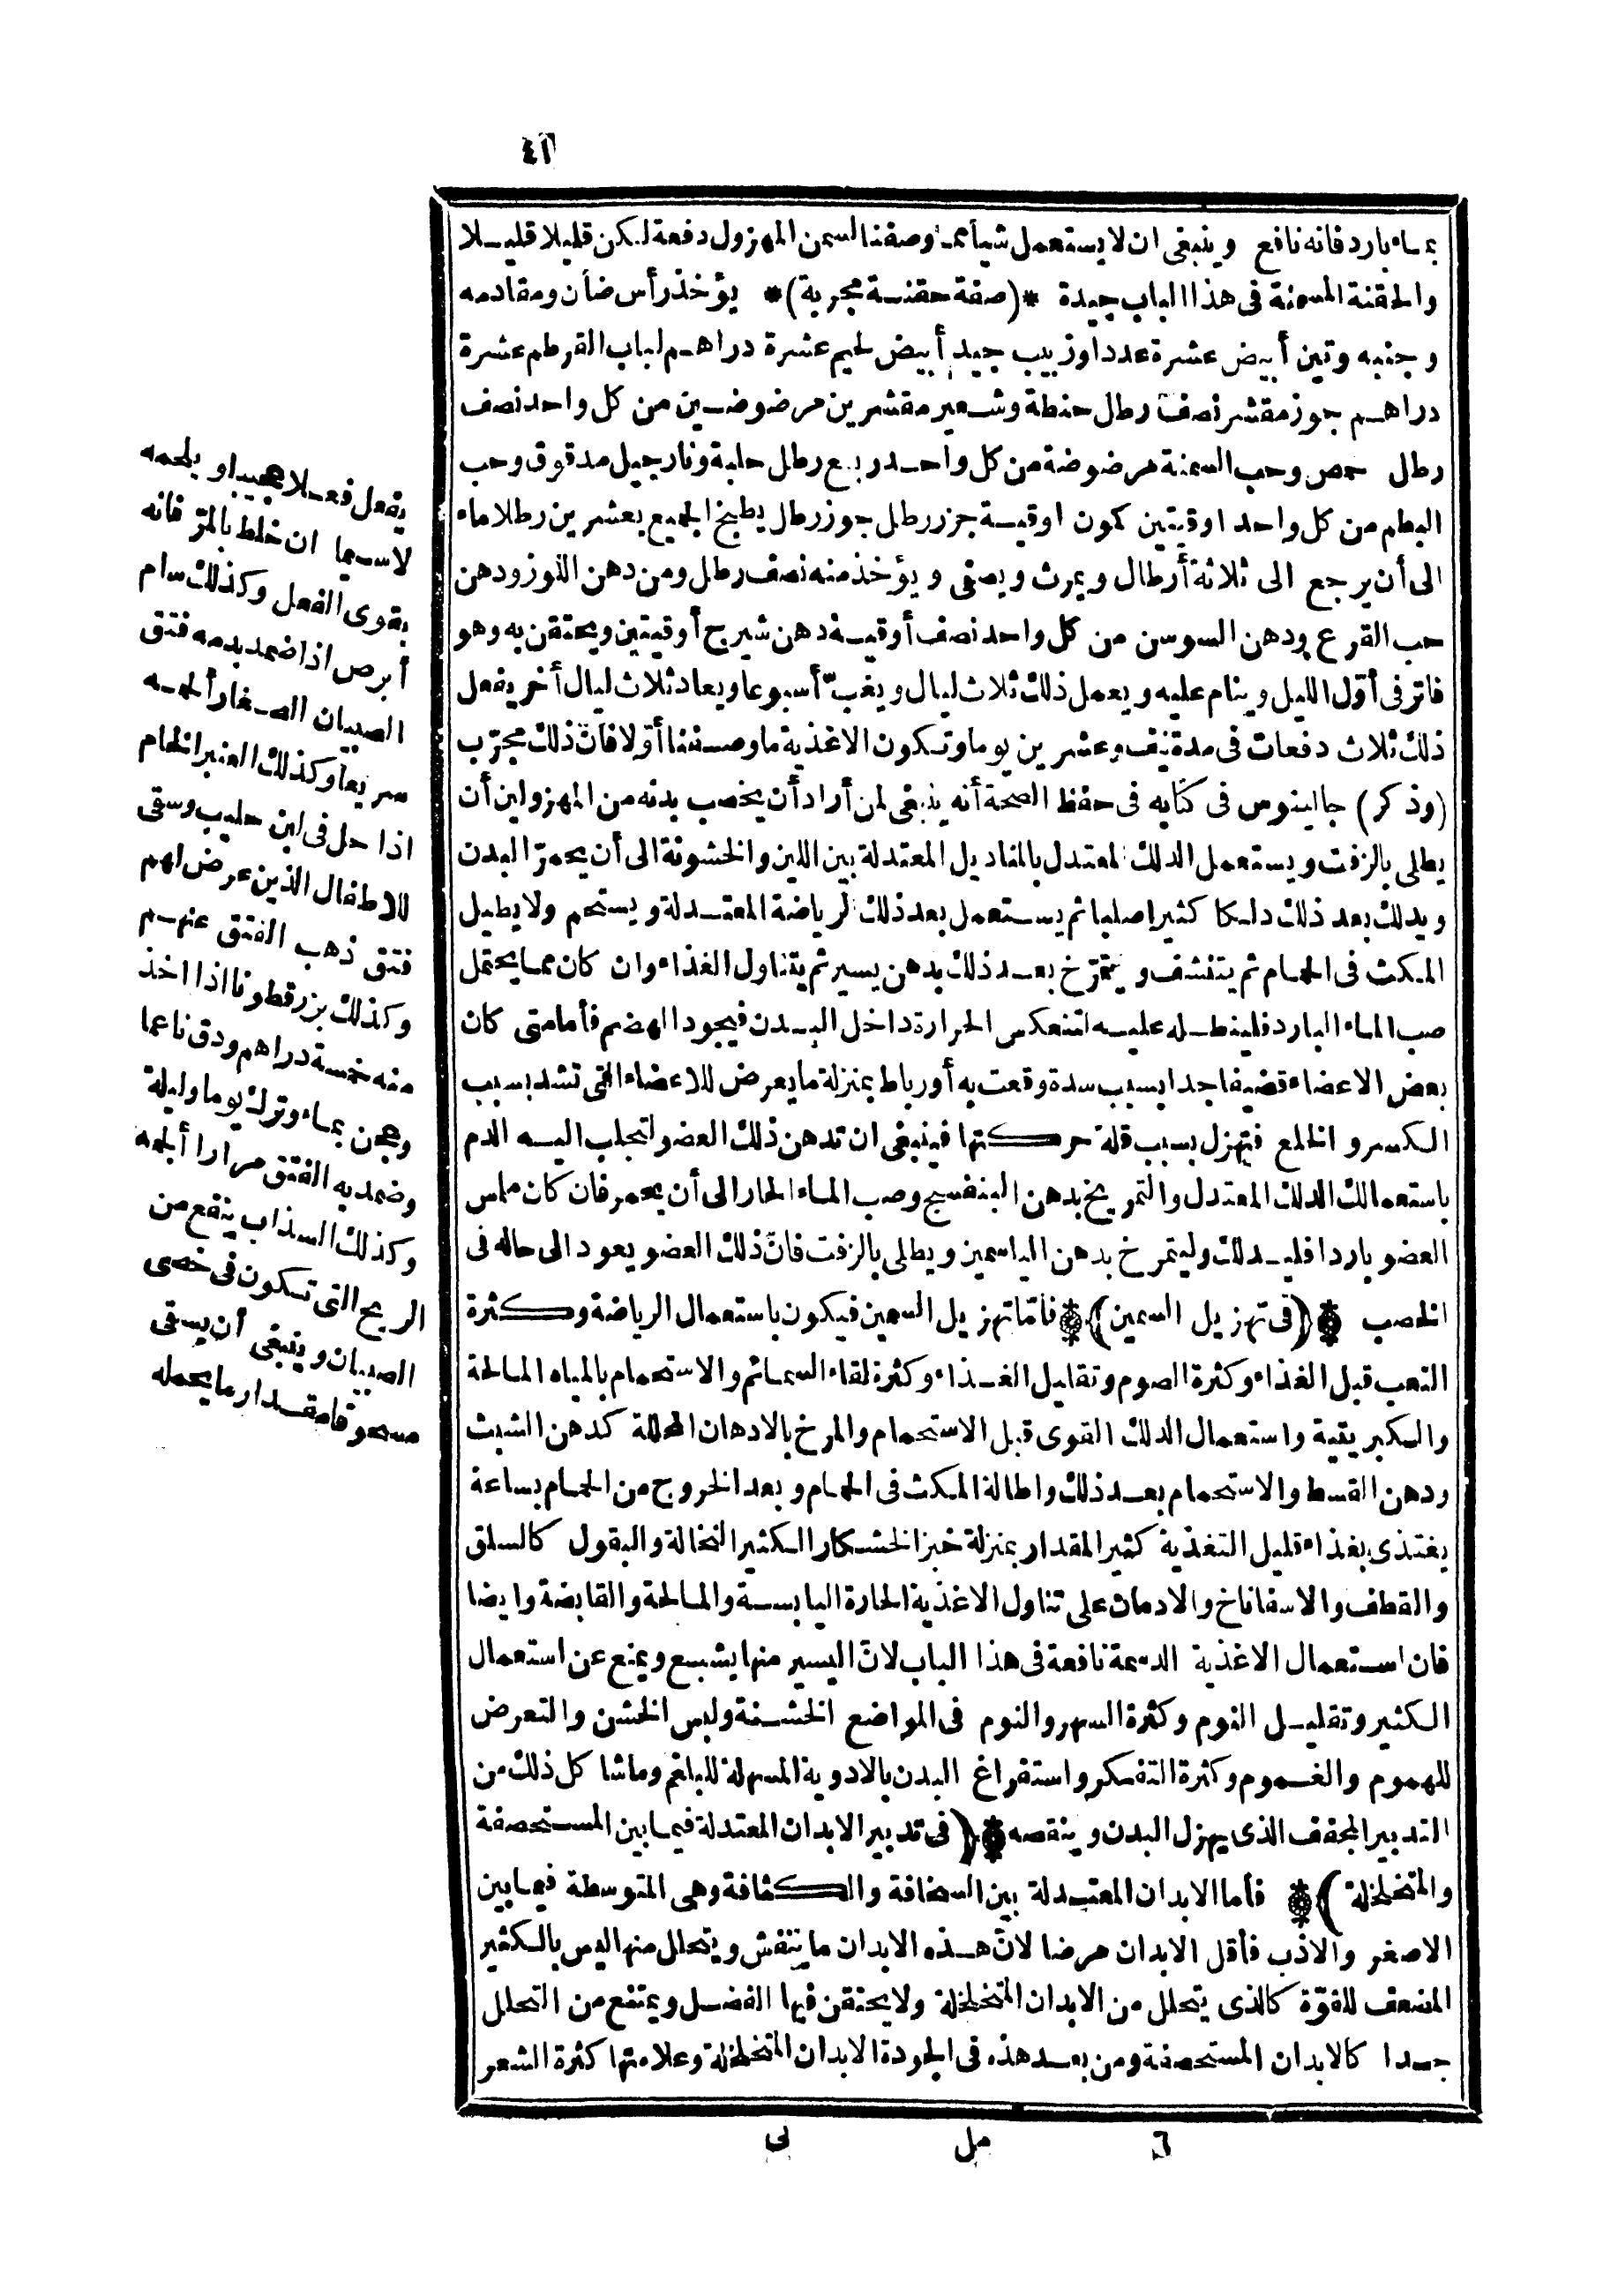 ٤١
بماء بارد فانه نافع وينبغى ان لا يستعمل شيأ مما وصفنا السمن المهزول دفعة لكن قليلا قليلا
والحقنة المسمنة فى هذا الباب جيدة *(صفة حقنة مجربة)* يؤخذ رأس ضأن ومقادمه
وجنبه وتين أبيض عشرة عددا وزبيب جيد أبيض لحيم عشرة دراهم لباب القرطم عشرة
دراهم جوز مقشر نصف رطل حنطة وشعير مقشرين مرضوضين من كل واحد نصف
رطل حمص وحب السمنة مرضوضة من كل واحد ربع رطل حلبة ونارجيل مدقوق وحب
البطم من كل واحد اوقيتين كمون اوقية جزر رطل جوز رطل يطبخ الجميع بعشرين رطلا ماء
الى أن يرجع الى ثلاثة أرطال ويمرث ويصفى ويؤخذ منه نصف رطل ومن دهن اللوز ودهن
حب القرع ودهن السوسن من كل واحد نصف أوقية دهن شيرج أوقيتين ويحتقن به وهو
فاتر فى أوّل الليل وينام عليه ويعمل ذلك ثلاث ليال ويغبّ أسبوعا ويعاد ثلاث ليال أخر يفعل
ذلك ثلاث دفعات فى مدة نيف وعشرين يوما وتكون الاغذية ما وصفنا أوّلا فانّ ذلك مجرّب
(وذكر) جالينوس فى كتابه فى حفظ الصحة أنه ينبغى لمن أراد أن يخصب بدنه من المهزولين أن
يطلى بالزفت ويستعمل الدلك المعتدل بالمناديل المعتدلة بين اللين والخشونة الى أن يحمرّ البدن
ويدلك بعد ذلك دلكا كثيرا صلبا ثم يستعمل بعد ذلك الرياضة المعتدلة ويستحم ولا يطيل
المكث فى الحمام ثم يتنشف ويتمرّخ بعد ذلك بدهن يسير ثم يتناول الغذاء وان كان مما يحتمل
صب الماء البارد فلينطله عليه لتنعكس الحرارة داخل البدن فيجود الهضم فأما متى كان
بعض الاعضاء قضيفا جدا بسبب سدة وقعت به أو رباط بمنزلة ما يعرض للاعضاء التى تشد بسبب
الكسر والخلع فتهزل بسبب قلة حركتها فينبغى ان تدهن ذلك العضو لتجلب اليه الدم
باستعمالك الدلك المعتدل والتمريخ بدهن البنفسج وصب الماء الحار الى أن يحمر فان كان ملمس
العضو باردا فليدلك وليتمرخ بدهن الياسمين ويطلى بالزفت فانّ ذلك العضو يعود الى حاله فى
الخصب (فى تهزيل السمين) فأمّا تهزيل السمين فيكون باستعمال الرياضة وكثرة
التعب قبل الغذاء وكثرة الصوم وتقليل الغذاء وكثرة لقاء السمائم والاستحمام بالمياه المالحة
والكبريتية واستعمال الدلك القوى قبل الاستحمام والمرخ بالادهان المحللة كدهن الشبث
ودهن القسط والاستحمام بعد ذلك واطالة المكث فى الحمام وبعد الخروج من الحمام بساعة
يغتذى بغذاء قليل التغذية كثير المقدار بمنزلة خبز الخشكار الكثير النخالة والبقول كالسلق
والقطف والاسفاناخ والادمان على تناول الاغذية الحارة اليابسة والمالحة والقابضة وايضا
فان استعمال الاغذية الدسمة نافعة فى هذا الباب لانّ اليسير منها يشبع ويمنع عن استعمال
الكثير وتقليل النوم وكثرة السهر والنوم فى المواضع الخشنة ولبس الخشن والتعرض
للهموم والغموم وكثرة التفكر واستفراغ البدن بالادوية المسهلة للبلغم وماشا كل ذلك من
التدبير المجفف الذى يهزل البدن وينقصه (فى تدبير الابدان المعتدلة فيما بين المستحصفة
والمتخلخلة) فأما الابدان المعتدلة بين السخافة والكثافة وهى المتوسطة فيما بين
الاصغر والاذب فأقل الابدان مرضا لانّ هذه الابدان ما يتنفش ويتحلل منها ليس بالكثير
المضعف للقوّة كالذى يتحلل من الابدان المتخلخلة ولا يحتقن فيها الفضل ويمتنع من التحلل
جدا كالابدان المستحصفة ومن بعد هذه فى الجودة الابدان المتخلخلة وعلامتها كثرة الشعر
يفعل فعلا عجيبا ويلحمه
لاسيما ان خلط بالمرّ فانه
يقوى الفعل وكذلك سام
أبرص اذا ضمد بدمه فتق
الصبيان الصغار ألحمه
سريعا وكذلك العنبر الخام
اذا حل فى لبن حليب وسقى
للاطفال الذين عرض لهم
فتق ذهب الفتق عنهم
وكذلك بزر قطونا اذا اخذ
منه خمسة دراهم ودق ناعما
وعجن بماء وترك يوما وليلة
وضمد به الفتق مرارا ألحمه
وكذلك السذاب ينفع من
الريح التى تكون فى خصى
الصبيان وينبغى أن يسقى
مسحوقا مقدار ما يحمله
٦ مل نى